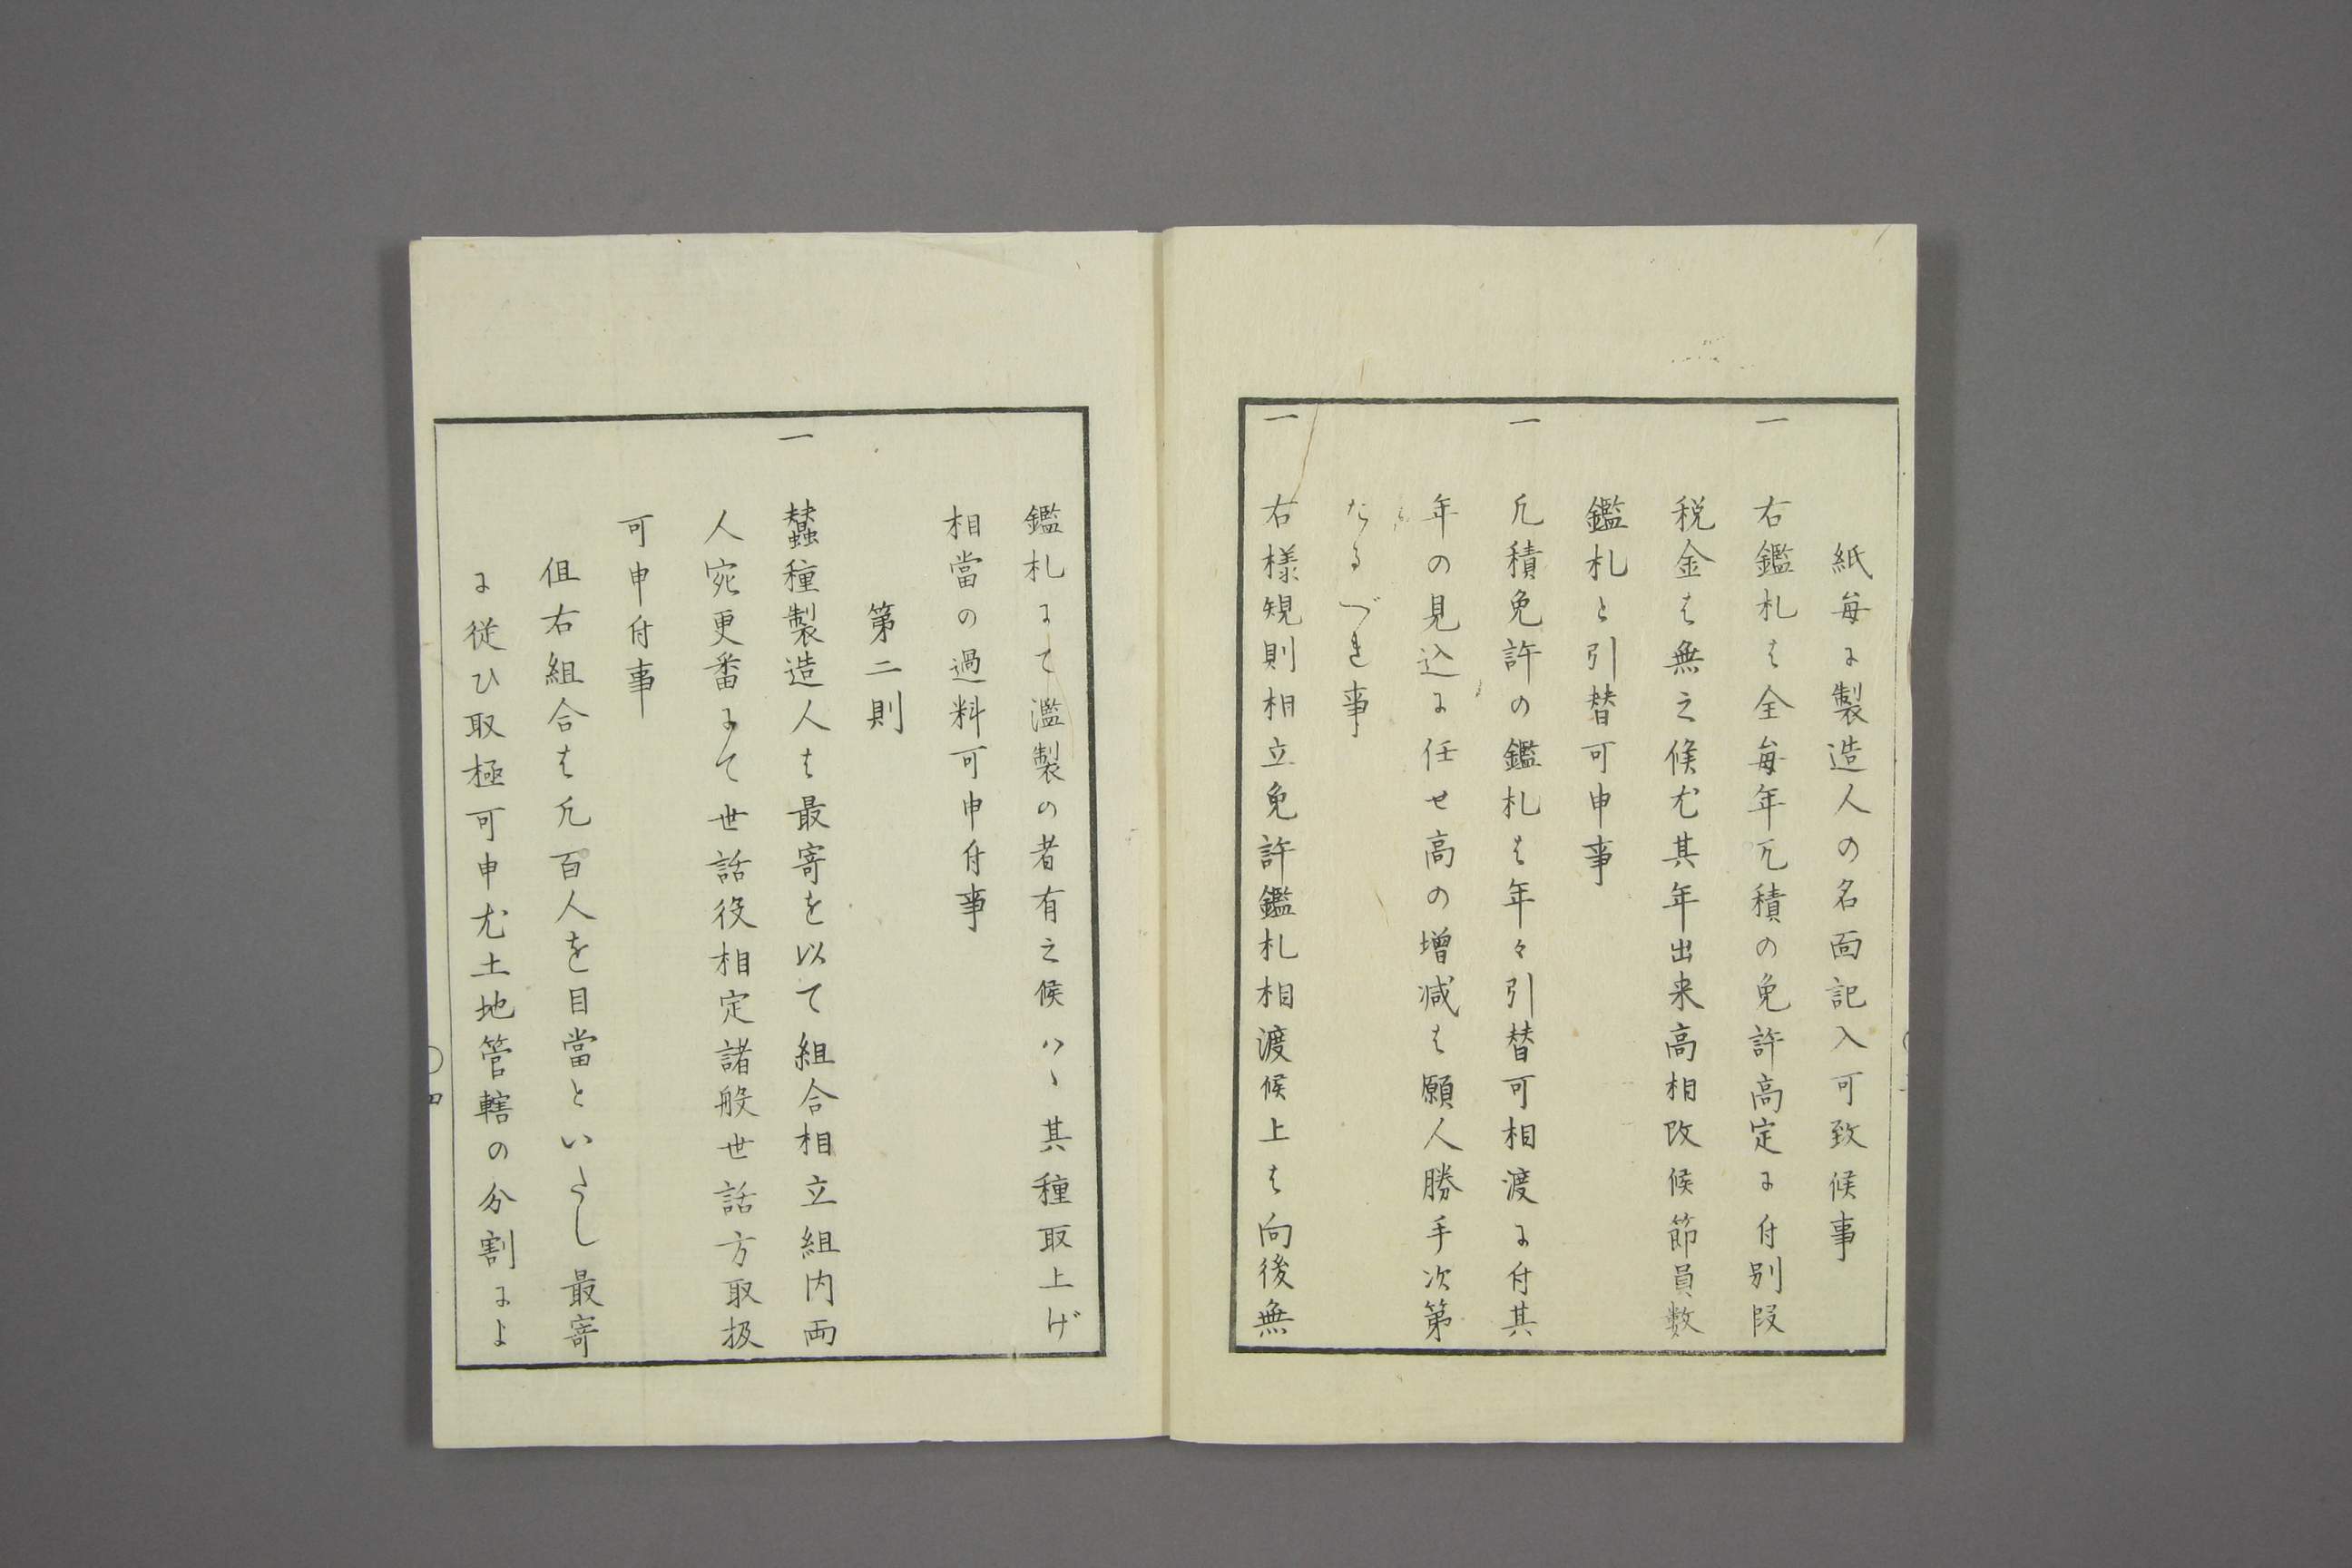 紙毎に製造人の名面記入可致候事
一　右鑑札は全毎年凢積の免許高定に付別段
税金は無之候尤其年出来高相改候節員数
鑑札と引替可申事
一　凢積免許の鑑札は年々引替可相渡に付其
年の見込に任せ高の増減は願人勝手次第
たるべき事
一　右様規則相立免許鑑札相渡候上は向後無
鑑札にて濫製の者有之候ハヽ其種取上げ
相當の過料可申付事
第二則
一　蠶種製造人は最寄を以て組合相立組内両
人宛更番にて世話役相定諸般世話方取扱
可申付事
但右組合は凢百人を目當といたし最寄
に従ひ取極可申尤土地管轄の分割によ
〇四